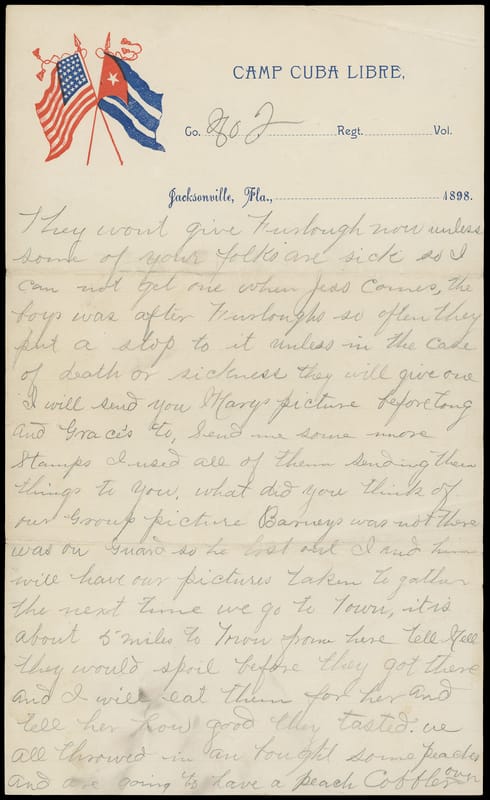 CAMP CUBA LIBRE,
Co. No 2 Regt. Vol.
Jacksonville, Fla., 1898.
They wont give Furlough now unless
some of your folks are sick so I
can not get one when Jess comes, the
boys was after Furloughs so often they
put a stop to it unless in the case
of death or sickness they will give one
I will send you Marys picture before long
and Gracis to, Send me some more
Stamps I used all of them sending them
things to you. what did you think of
our Group picture Barneys was not there
was on Guard so he lost out I and him
will have our pictures taken to gather
the next time we go to Town, it is
about 5 miles to Town from here tell Nell
they would spoil before they got there
and I will eat them for her and
tell her how good they tasted. we
all throwed in an bought some peaches
and are going to have a peach Cobbler over